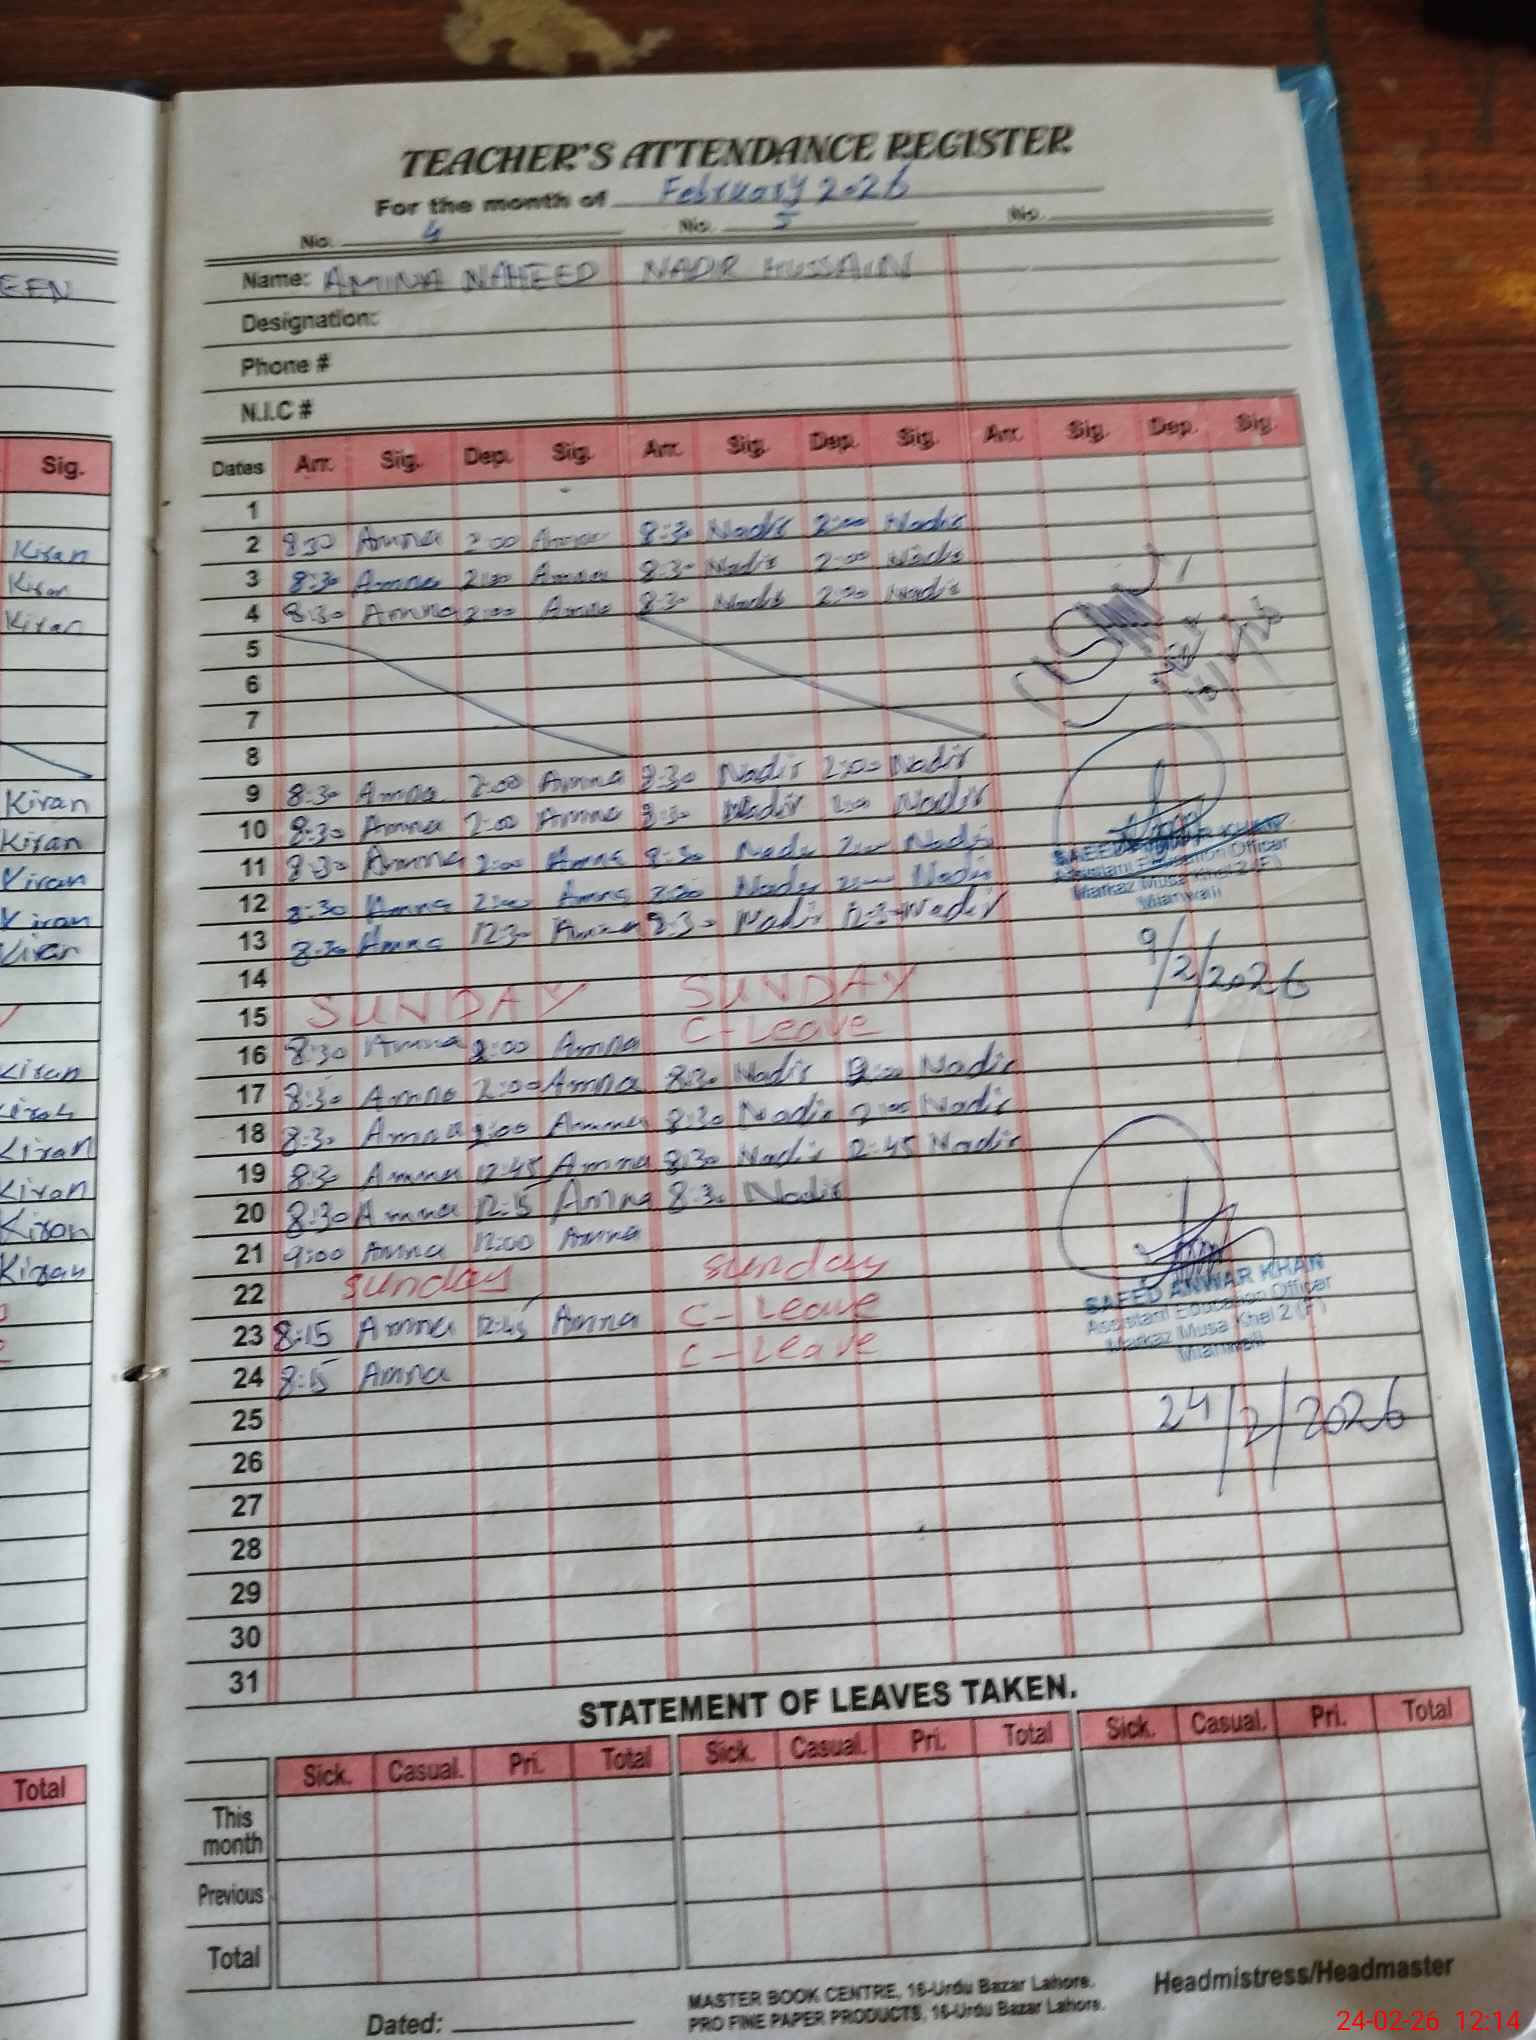 TEACHER'S ATTENDANCE REGISTER
For the month of February 2026
No. 4 No. 5 No.
Name: AMINA NAHEED NADR HUSSAIN
EEN
Designation:
Phone #
N.I.C #
Sig. Dates Arr. Sig. Dep. Sig. Arr. Sig. Dep. Sig. Arr. Sig. Dep. Sig.
1
Kiran 2 830 Amna 2:00 Amna 8:30 Nadir 2:00 Nadir
Kiran 3 8:30 Amna 2:00 Amna 8:30 Nadir 2:00 Nadir
Kiran 4 8:30 Amna 2:00 Amna 8:30 Nadir 2:00 Nadir
5
6
7
8
Kiran 9 8:30 Amna 2:00 Amna 8:30 Nadir 2:00 Nadir
Kiran 10 8:30 Amna 2:00 Amna 8:30 Nadir 2:00 Nadir
Kiran 11 8:30 Amna 2:00 Amna 8:30 Nadir 2:00 Nadir
Kiran 12 8:30 Amna 2:00 Amna 8:30 Nadir 2:00 Nadir
Kiran 13 8:30 Amna 12:30 Amna 8:30 Nadir 12:30 Nadir
SAEED ANWAR KHAN
Assistant Education Officer
Markaz Musa Khel 2 (F)
Mianwali
9/2/2026
14
15 SUNDAY SUNDAY
Kiran 16 8:30 Amna 2:00 Amna C-Leave
Kiran 17 8:30 Amna 2:00 Amna 8:30 Nadir 2:00 Nadir
Kiran 18 8:30 Amna 2:00 Amna 8:30 Nadir 2:00 Nadir
Kiran 19 8:30 Amna 12:45 Amna 8:30 Nadir 12:45 Nadir
Kiran 20 8:30 Amna 12:15 Amna 8:30 Nadir
Kiran 21 9:00 Amna 12:00 Amna
22 Sunday Sunday
23 8:15 Amna 12:45 Amna C-Leave
24 8:15 Amna C-Leave
SAEED ANWAR KHAN
Assistant Education Officer
Markaz Musa Khel 2 (F)
Mianwali
24/2/2026
25
26
27
28
29
30
31
STATEMENT OF LEAVES TAKEN.
Total Sick. Casual. Pri. Total Sick. Casual. Pri. Total Sick. Casual. Pri. Total
This month
Previous
Total
Dated:
MASTER BOOK CENTRE, 16-Urdu Bazar Lahore.
PRO FINE PAPER PRODUCTS, 16-Urdu Bazar Lahore.
Headmistress/Headmaster
24-02-26 12:14